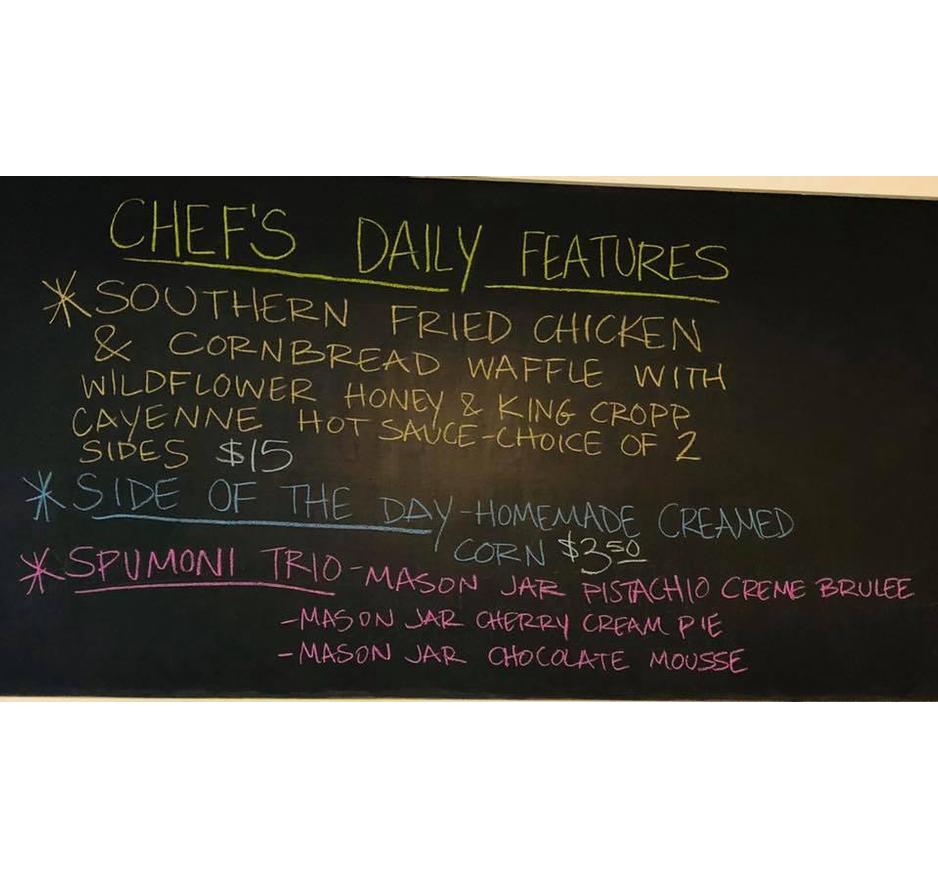 CHEF'S DAILY FEATURES
* SOUTHERN FRIED CHICKEN
& CORNBREAD WAFFLE WITH
WILDFLOWER HONEY & KING CROPP
CAYENNE HOT SAUCE-CHOICE OF 2
SIDES $15
* SIDE OF THE DAY-HOMEMADE CREAMED
CORN $3.50
* SPUMONI TRIO-MASON JAR PISTACHIO CREME BRULEE
-MASON JAR CHERRY CREAM PIE
-MASON JAR CHOCOLATE MOUSSE